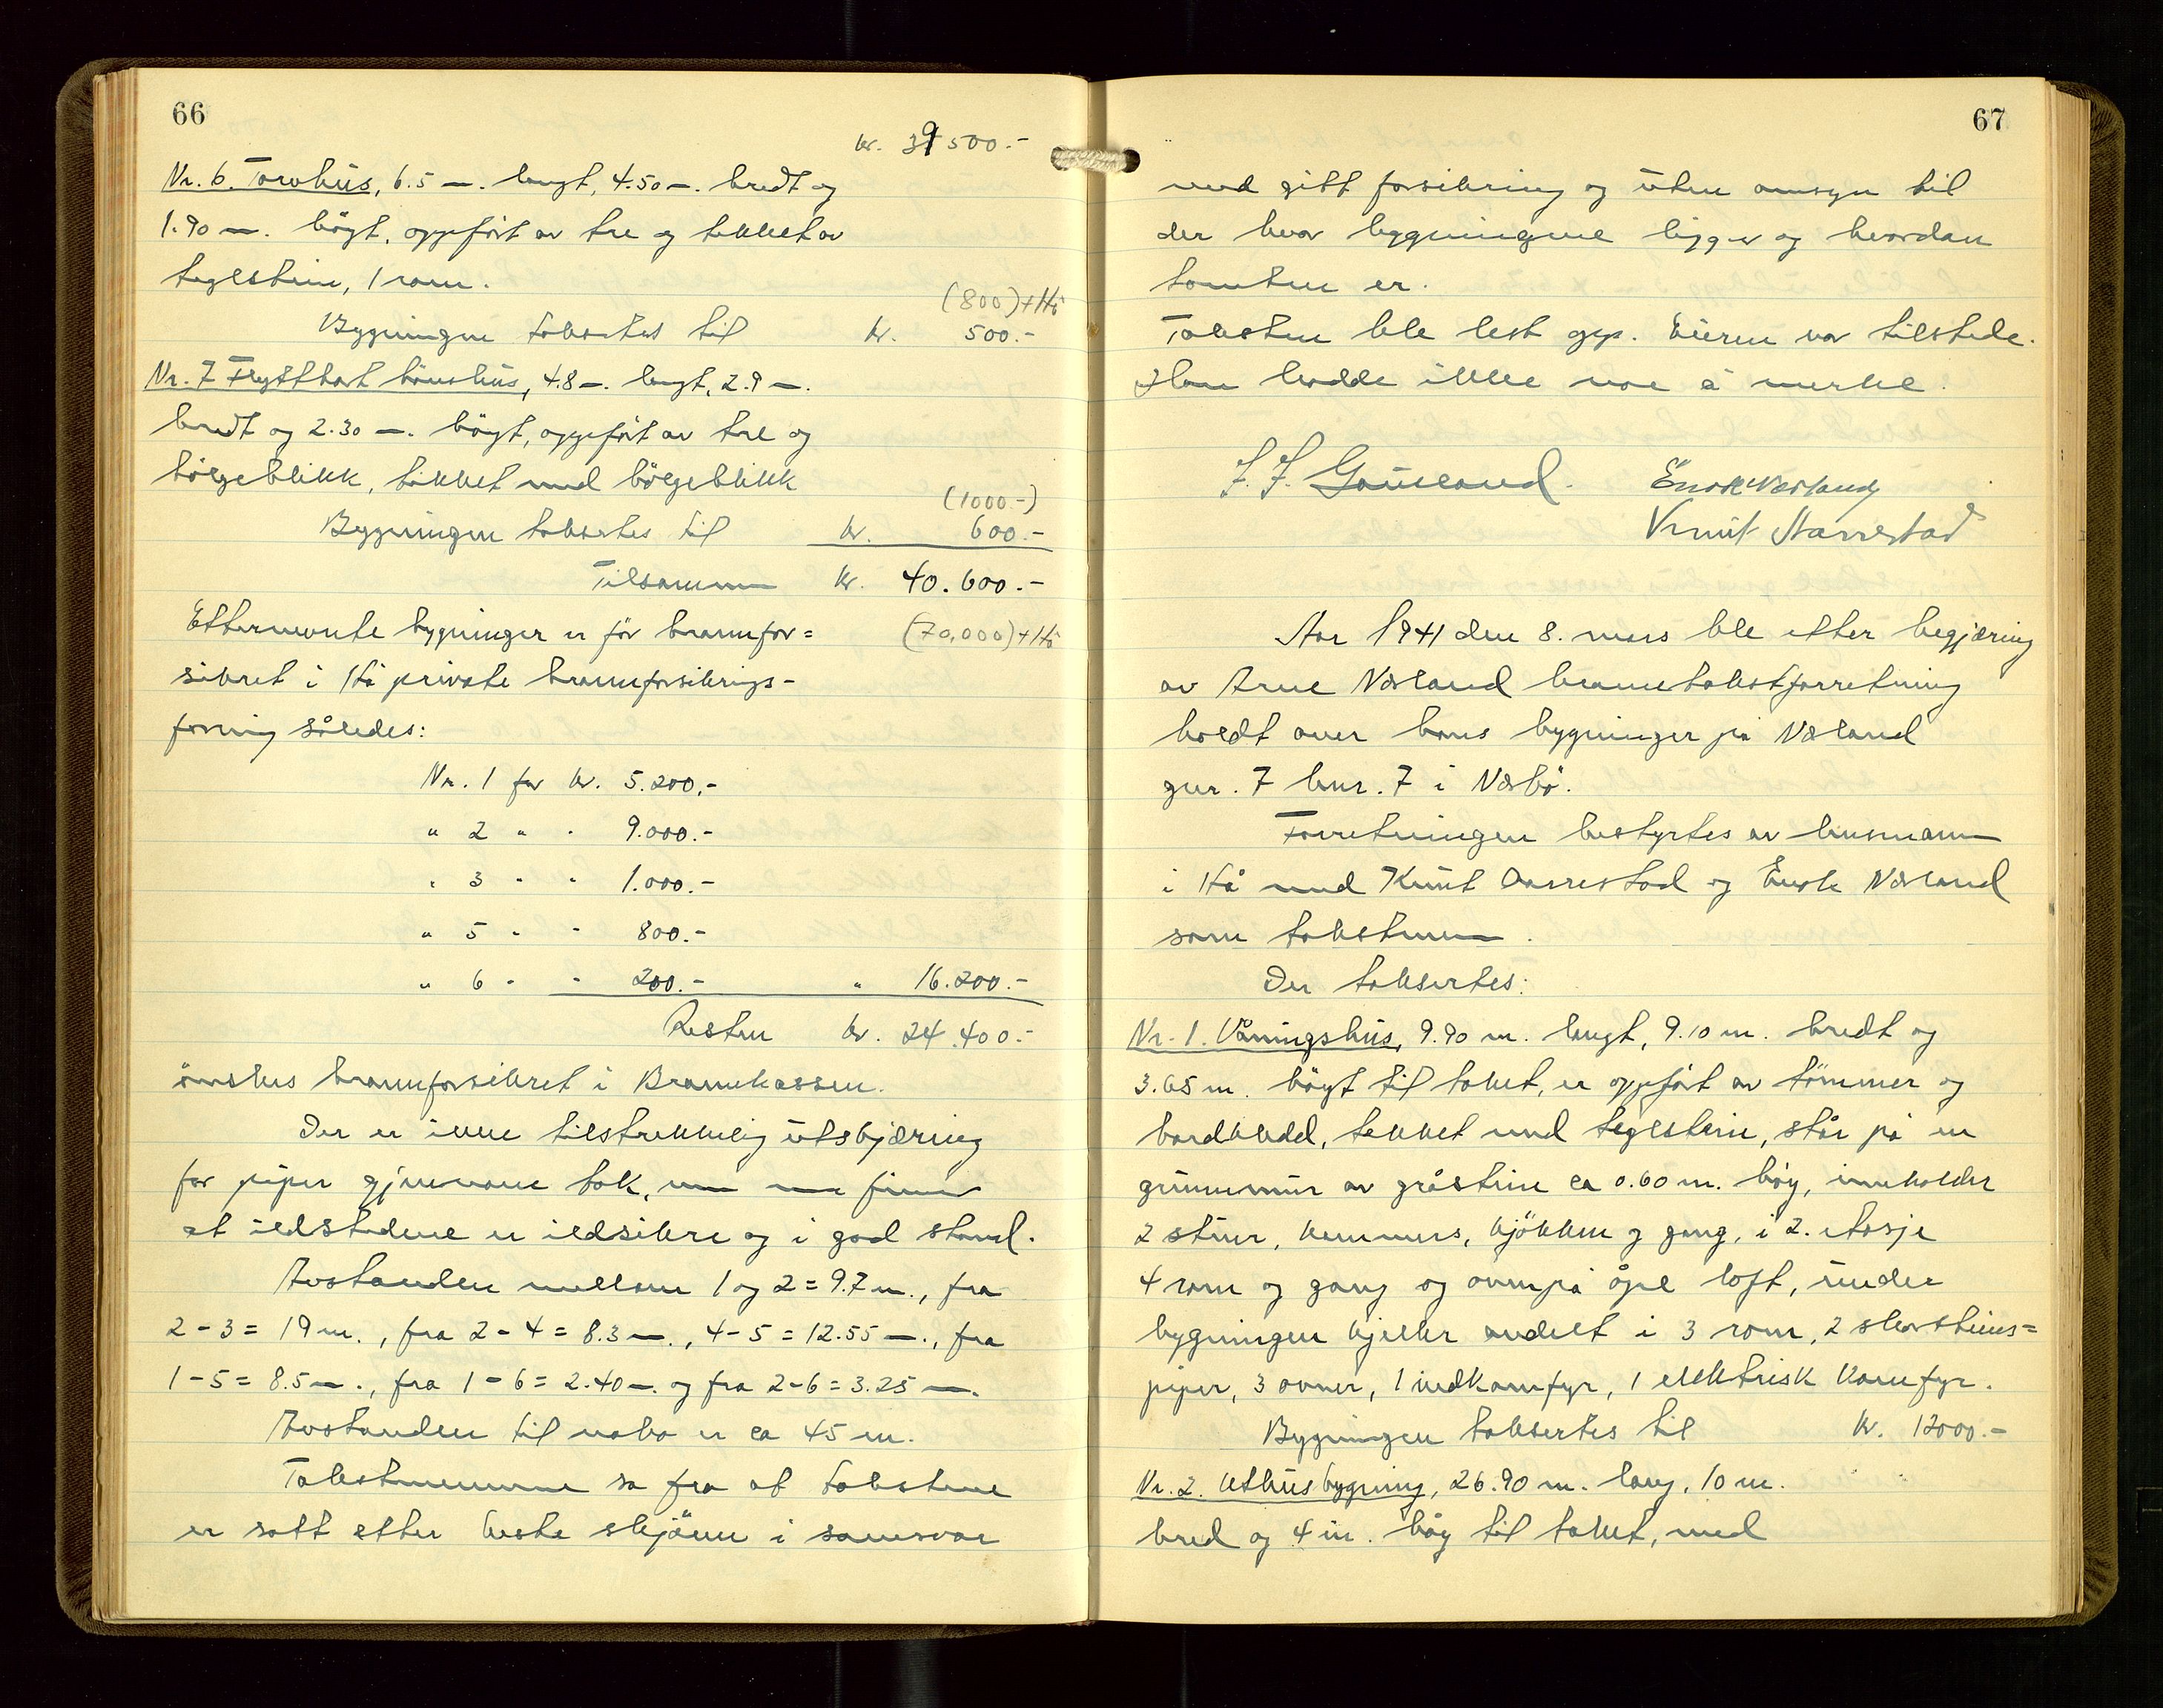 66
kr. 39500.-
Nr. 6. Torvhus, 6.5 m. langt, 4.50 m. bredt og
1.90 m. högt, oppfört av tre og tekket av
teglstein, 1 rom.
(800)+Hå
Bygningen taksertes til kr. 500.-
Nr. 7 Flyttbart hönshus, 4.8 m. langt, 2.9 m.
bredt og 2.30 m. högt, oppfört av tre og
bölgeblikk, tekket med bölgeblikk
(1000.-)
Bygningen taksertes til kr. 600.-
Tilsammen kr. 40.600.-
Etternevnte bygninger er för brannfor= (70,000)+Hå
sikret i Hå private brannforsikrings-
forening således:
Nr. 1 for kr. 5.200.-
" 2 " " 9.000.-
" 3 " " 1.000.-
" 5 " " 800.-
" 6 " " 200.- " 16.200.-
Resten kr. 24.400.-
önskes brannforsikret i Brannkassen.
Der er ikke tilstrekkelig utskjæring
for piper gjennem tak, men finner
at ildstedene er ildsikre og i god stand.
Avstanden mellom 1 og 2 = 9.7 m., fra
2-3 = 19 m., fra 2-4 = 8.3 m., 4-5 = 12.55 m., fra
1-5 = 8.5 m., fra 1-6 = 2.40 m. og fra 2-6 = 3.25 m.
Avstanden til nabo er ca 45 m.
Takstmennene sa fra at takstene
er satt etter beste skjönn i samsvar
67
med gitt forsikring og uten omsyn til
der hvor bygningene ligger og hvordan
tomten er.
Taksten ble lest opp. Eieren var tilstede.
Han hadde ikke noe å merke.
J. J. Gauland. Enok Nærland
Knut Aarrestad
Aar 1941 den 8. mars ble etter begjæring
av Arne Nærland branntakstforretning
holdt over hans bygninger på Nærland
gnr. 7 bnr. 7 i Nærbö.
Forretningen bestyrtes av lensmann
i Hå med Knut Aarrestad og Enok Nærland
som takstmenn.
Der taksertes:
Nr. 1. Våningshus, 9.90 m. langt, 9.10 m. bredt og
3.65 m. högt til taket, er oppfört av tömmer og
bordkledd, tekket med teglstein, står på en
grunnmur av gråstein ca 0.60 m. höy, inneholder
2 stuer, kammers, kjökken og gang, i 2. etasje
4 rom og gang og ovenpå åpe loft, under
bygningen kjeller avdelt i 3 rom, 2 skorsteins=
piper, 3 ovner, 1 vedkomfyr, 1 elektrisk komfyr.
Bygningen taksertes til kr. 12000.-
Nr. 2. Uthusbygning, 26.90 m. lang, 10 m.
bred og 4 m. höy til taket, med